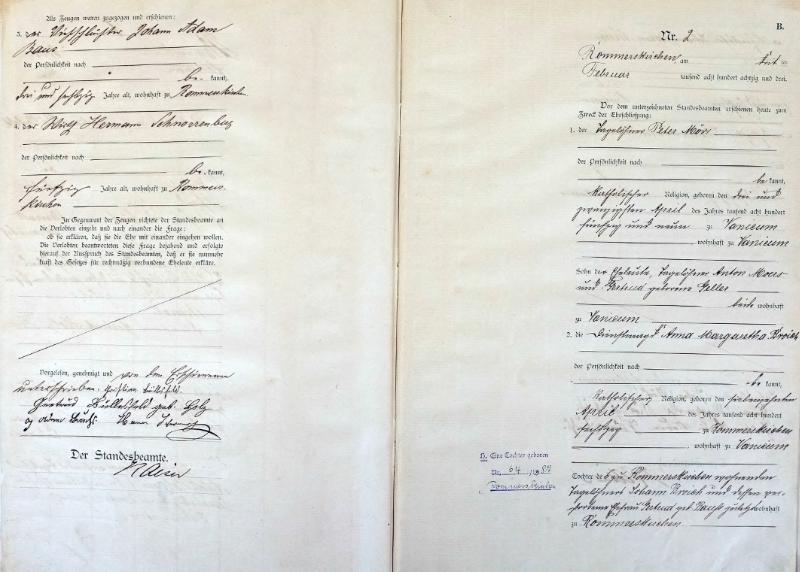 Als Zeugen waren zugezogen und erschienen:
3. der Viehschlächter Johann Adam
Baus
der Persönlichkeit nach
be kannt,
drei und sechszig Jahre alt, wohnhaft zu Rommerskirchen
4. der Wirth Hermann Schnorrenberg
der Persönlichkeit nach
be kannt,
fünfzig Jahre alt, wohnhaft zu Rommers-
kirchen
In Gegenwart der Zeugen richtete der Standesbeamte an
die Verlobten einzeln und nach einander die Frage:
ob sie erklären, daß sie die Ehe mit einander eingehen wollen.
Die Verlobten beantworteten diese Frage bejahend und erfolgte
hierauf der Ausspruch des Standesbeamten, daß er sie nunmehr
kraft des Gesetzes für rechtmäßig verbundene Eheleute erkläre.
Vorgelesen, genehmigt und von den Erschienenen
unterschrieben.
Gertrud geb.
Der Standesbeamte.
B.
Nr. 2
Rommerskirchen, am
Februar tausend acht hundert achtzig und drei.
Vor dem unterzeichneten Standesbeamten erschienen heute zum
Zweck der Eheschließung:
1. der Tagelöhner Peter Mörs
der Persönlichkeit nach
be kannt,
katholischer Religion, geboren den drei und
zwanzigsten April des Jahres tausend acht hundert
fünfzig und neun zu Vanikum
wohnhaft zu Vanikum
Sohn der Eheleute, Tagelöhner Anton Moers
und Gertrud geborene Geller
beide wohnhaft
zu Vanikum
2. die Dienstmagd Anna Margaretha Broich
der Persönlichkeit nach
be kannt,
katholischer Religion, geboren den siebenzehnten
April des Jahres tausend acht hundert
sechszig zu Rommerskirchen
wohnhaft zu Vanikum
Tochter des zu Rommerskirchen wohnenden
Tagelöhners Johann Broich und dessen ver-
storbene Ehefrau Gertrud geb. Bauß zuletzt wohnhaft
zu Rommerskirchen
Eine Tochter geboren
Nr. 64 1887
Rommerskirchen